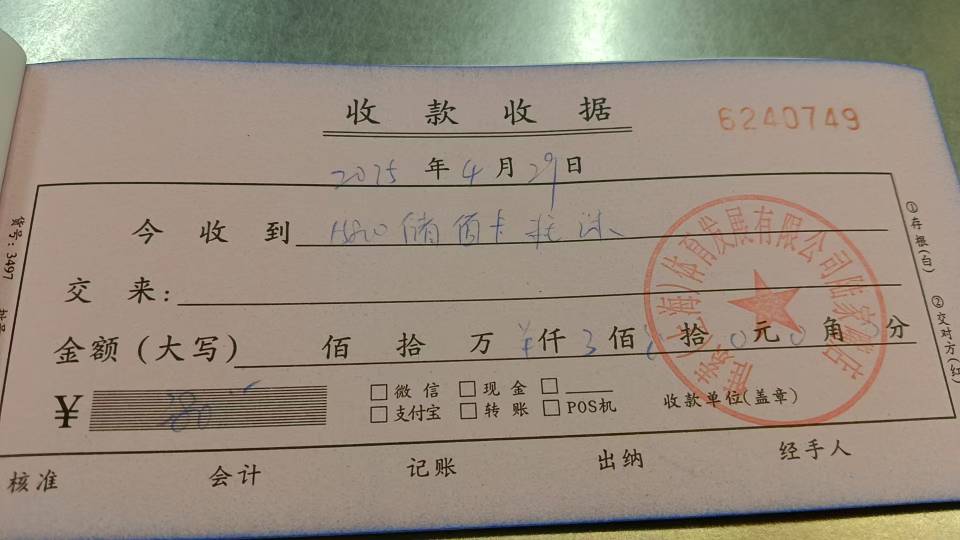 收款收据
6240749
2025年4月29日
今收到 储值卡
交来:
金额(大写) 佰 拾 万 ¥仟 3佰 8拾 0元 0角 分
¥ 380
□微信 □现金 □
□支付宝 □转账 □POS机
收款单位(盖章)
核准 会计 记账 出纳 经手人
①存根(白) ②交对方(红)
货号:3497
(上海)体育发展有限公司陆家嘴店